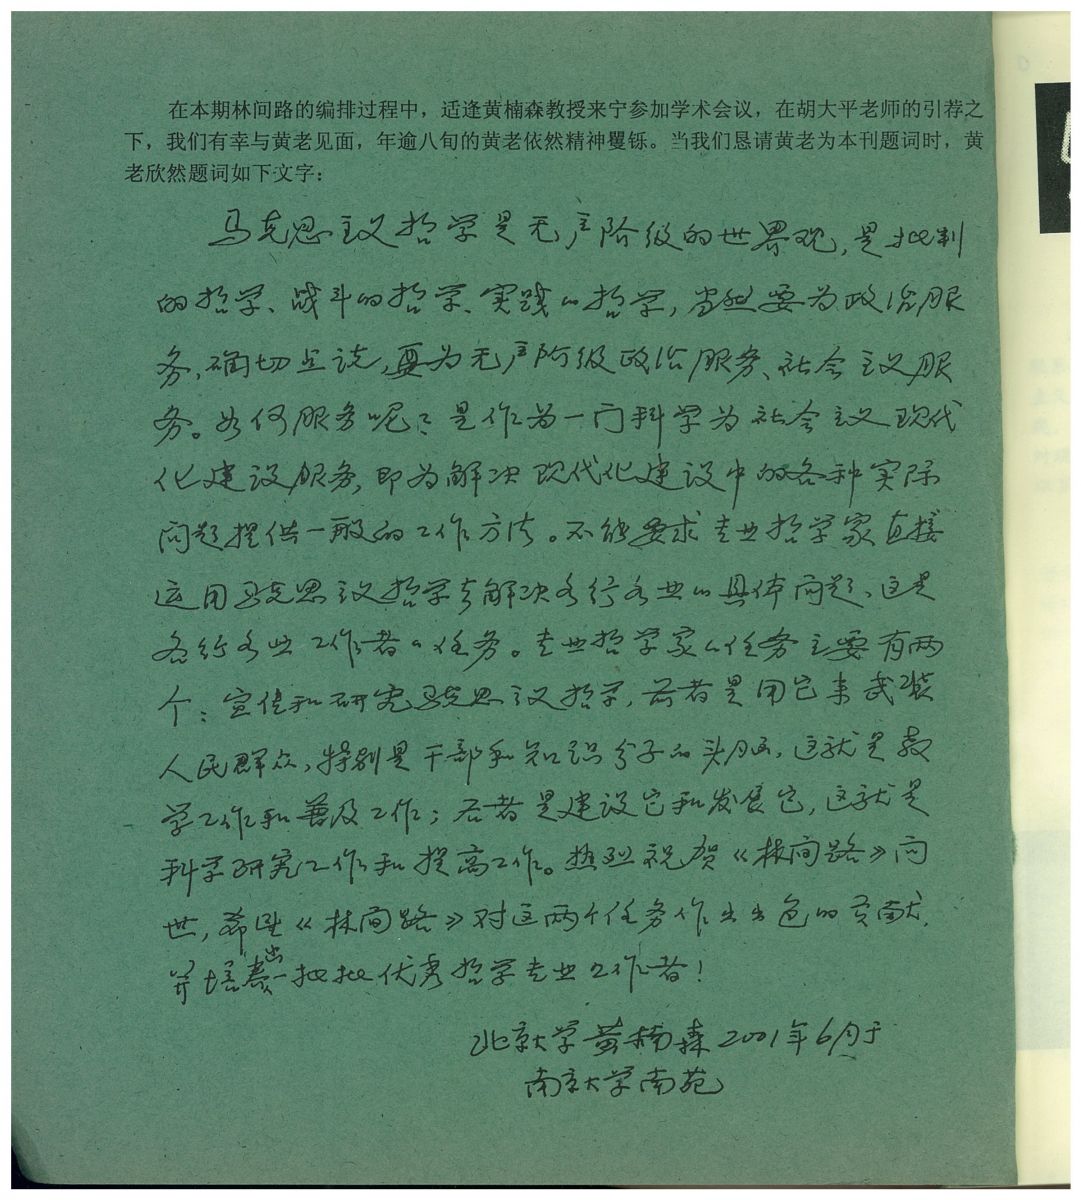 在本期林间路的编排过程中，适逢黄楠森教授来宁参加学术会议，在胡大平老师的引荐之
下，我们有幸与黄老见面，年逾八旬的黄老依然精神矍铄。当我们恳请黄老为本刊题词时，黄
老欣然题词如下文字：
马克思主义哲学是无产阶级的世界观，是批判
的哲学、战斗的哲学、实践的哲学，当然要为政治服
务，确切点说，要为无产阶级政治服务、社会主义服
务。如何服务呢？是作为一门科学为社会主义现代
化建设服务，即为解决现代化建设中的各种实际
问题提供一般的工作方法。不能要求专业哲学家直接
运用马克思主义哲学去解决各行各业的具体问题，这是
各行各业工作者的任务。专业哲学家的任务主要有两
个：宣传和研究马克思主义哲学，前者是用它来武装
人民群众，特别是干部和知识分子的头脑，这就是教
学工作和普及工作；后者是建设它和发展它，这就是
科学研究工作和提高工作。热烈祝贺《林间路》问
世，希望《林间路》对这两个任务作出出色的贡献，
并培养出一批批优秀哲学专业工作者！
北京大学黄楠森2001年6月于
南京大学南苑